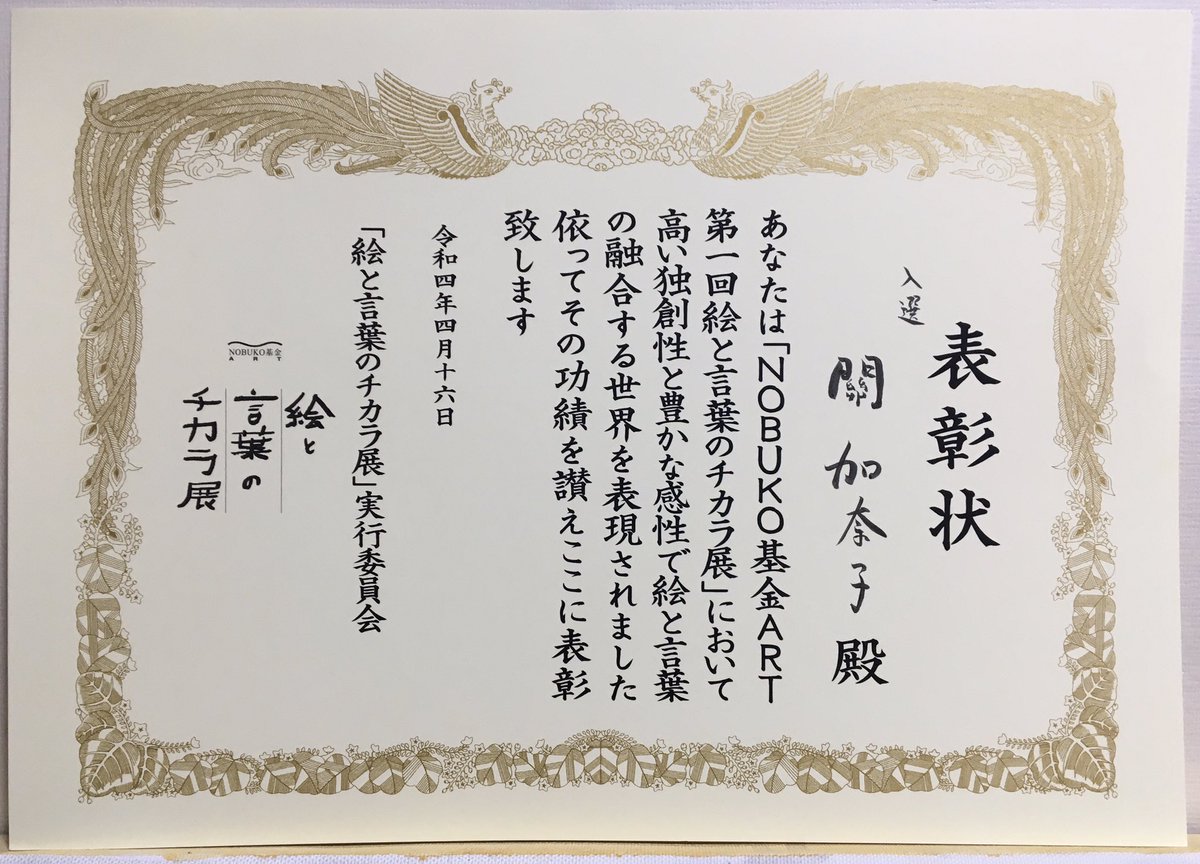 表彰状
入選
關 加奈子 殿
あなたは「NOBUKO基金ART
第一回絵と言葉のチカラ展」において
高い独創性と豊かな感性で絵と言葉
の融合する世界を表現されました
依ってその功績を讃えここに表彰
致します
令和四年四月十六日
「絵と言葉のチカラ展」実行委員会
NOBUKO基金
ART
絵と
言葉の
チカラ展